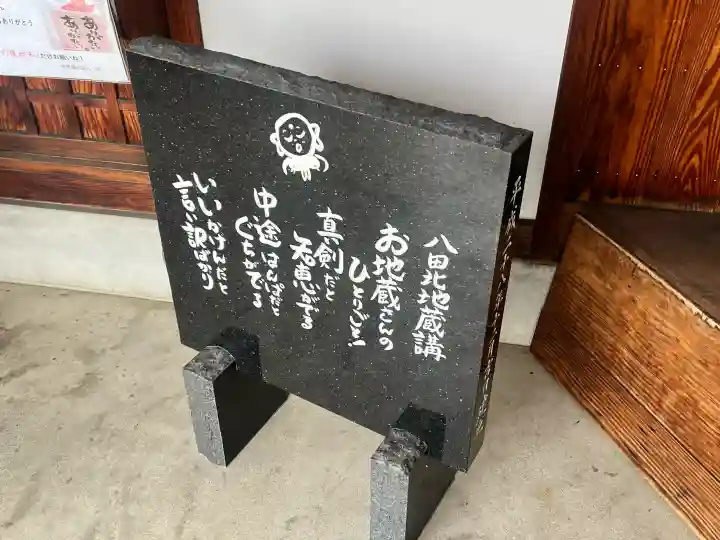 八田北地蔵講
お地蔵さんの
ひとりごと!
真剣だと
知恵がでる
中途はんぱだと
ぐちがでる
いいかげんだと
言い訳ばかり
ありがとう